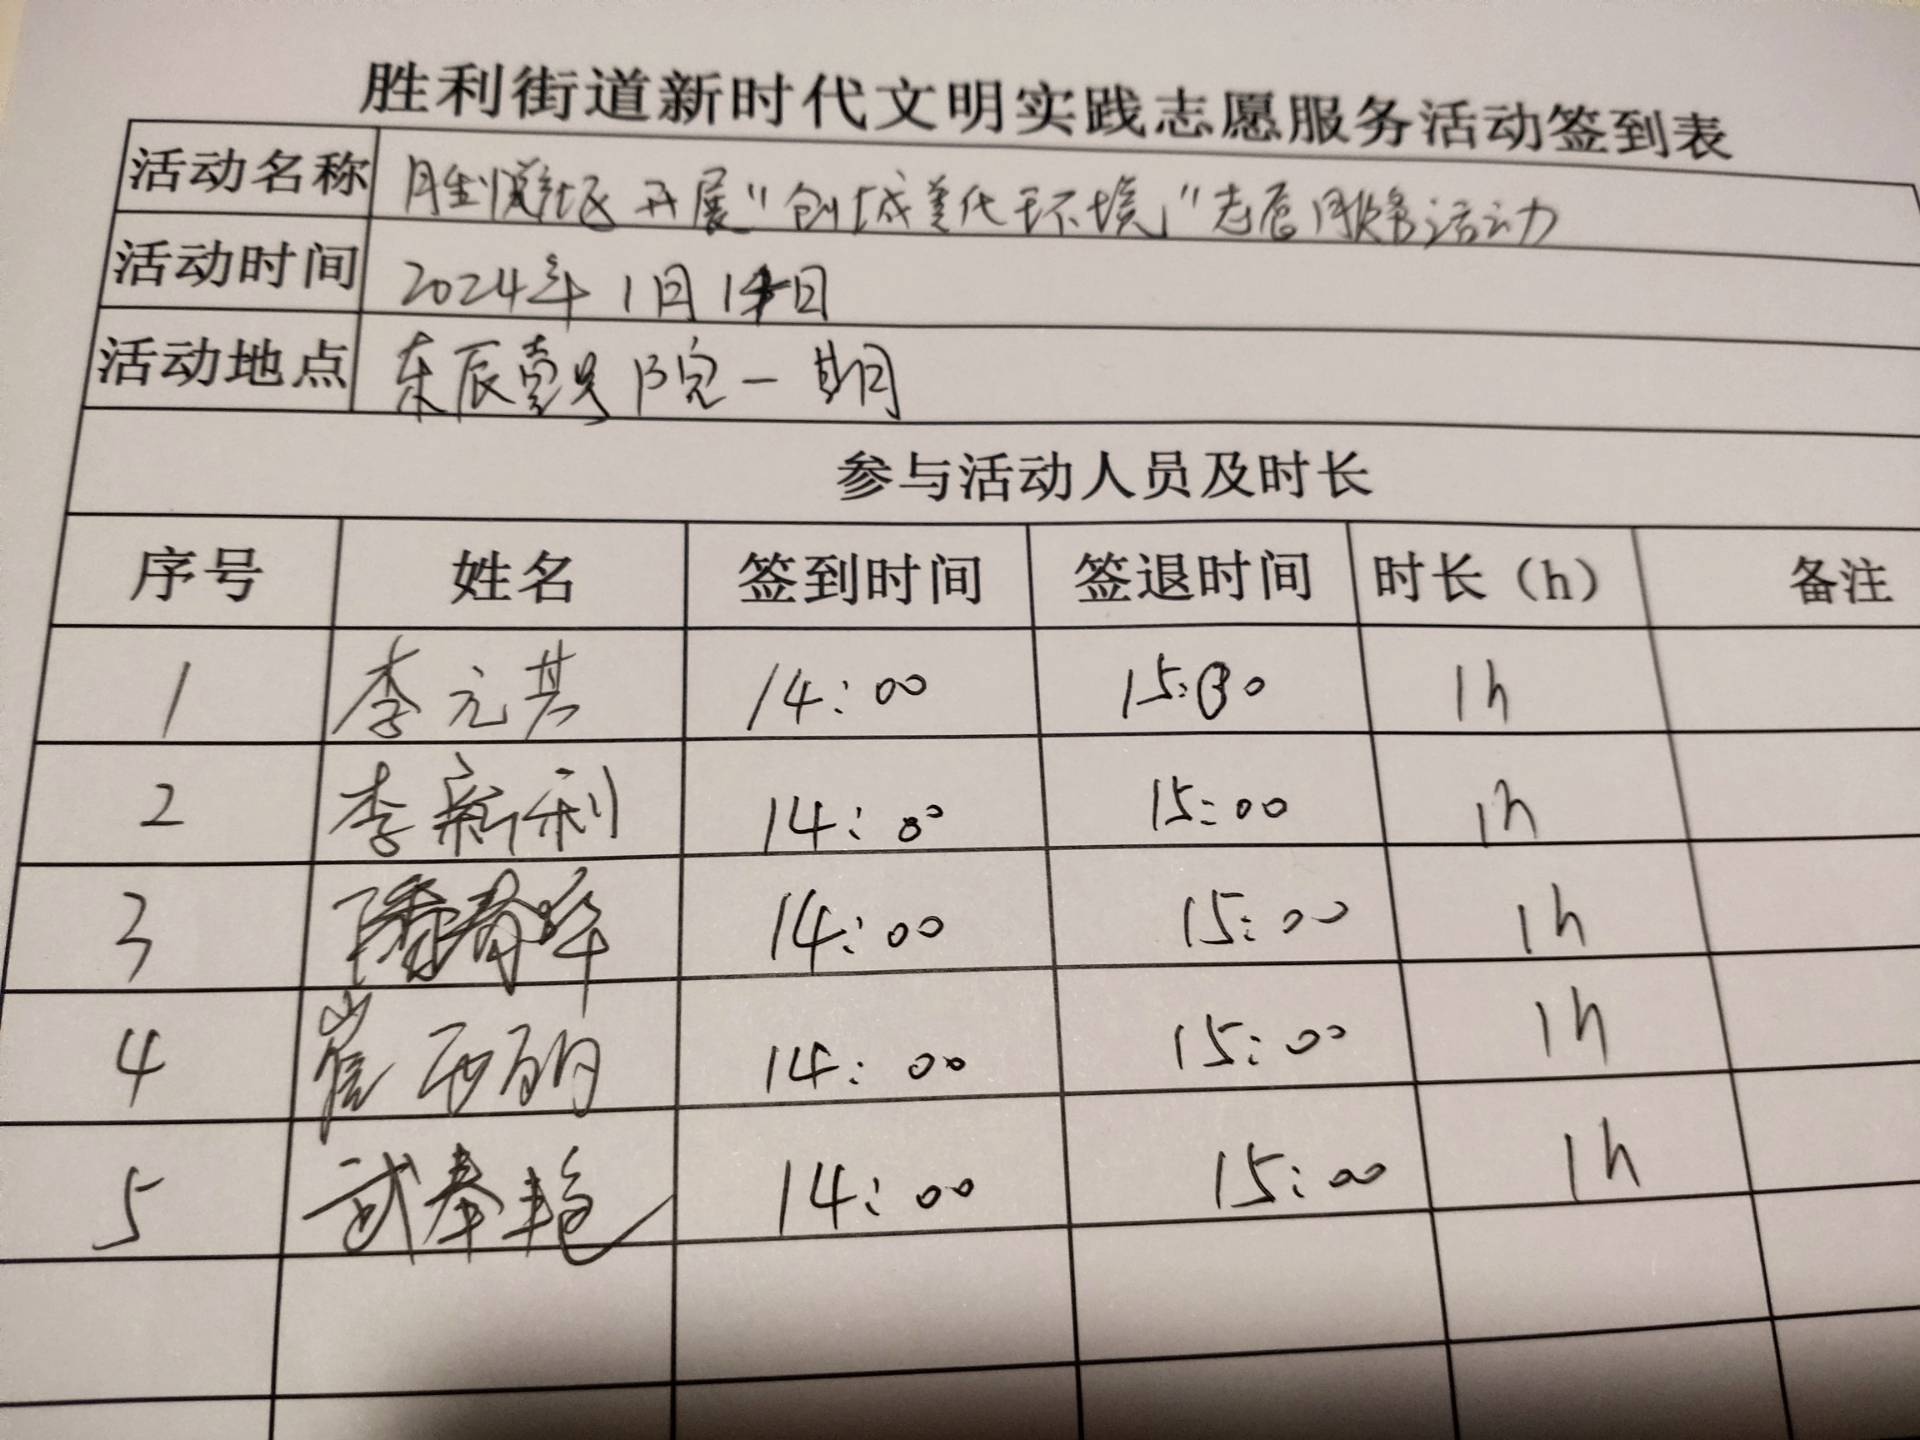 胜利街道新时代文明实践志愿服务活动签到表
活动名称 胜悦社区开展"创城美化环境"志愿服务活动
活动时间 2024年1月14日
活动地点 东辰壹院一期
参与活动人员及时长
序号 姓名 签到时间 签退时间 时长（h） 备注
1 李元其 14:00 15:00 1h
2 李新利 14:00 15:00 1h
3 14:00 15:00 1h
4 崔 14:00 15:00 1h
5 武春艳 14:00 15:00 1h